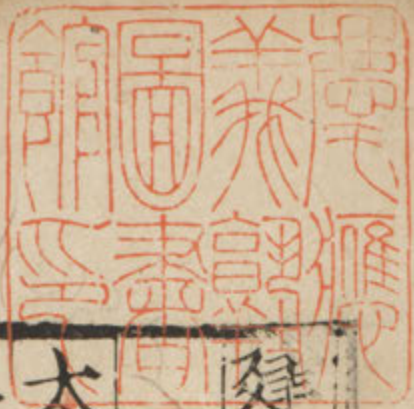 慶應
義塾
圖書
館印
建
大